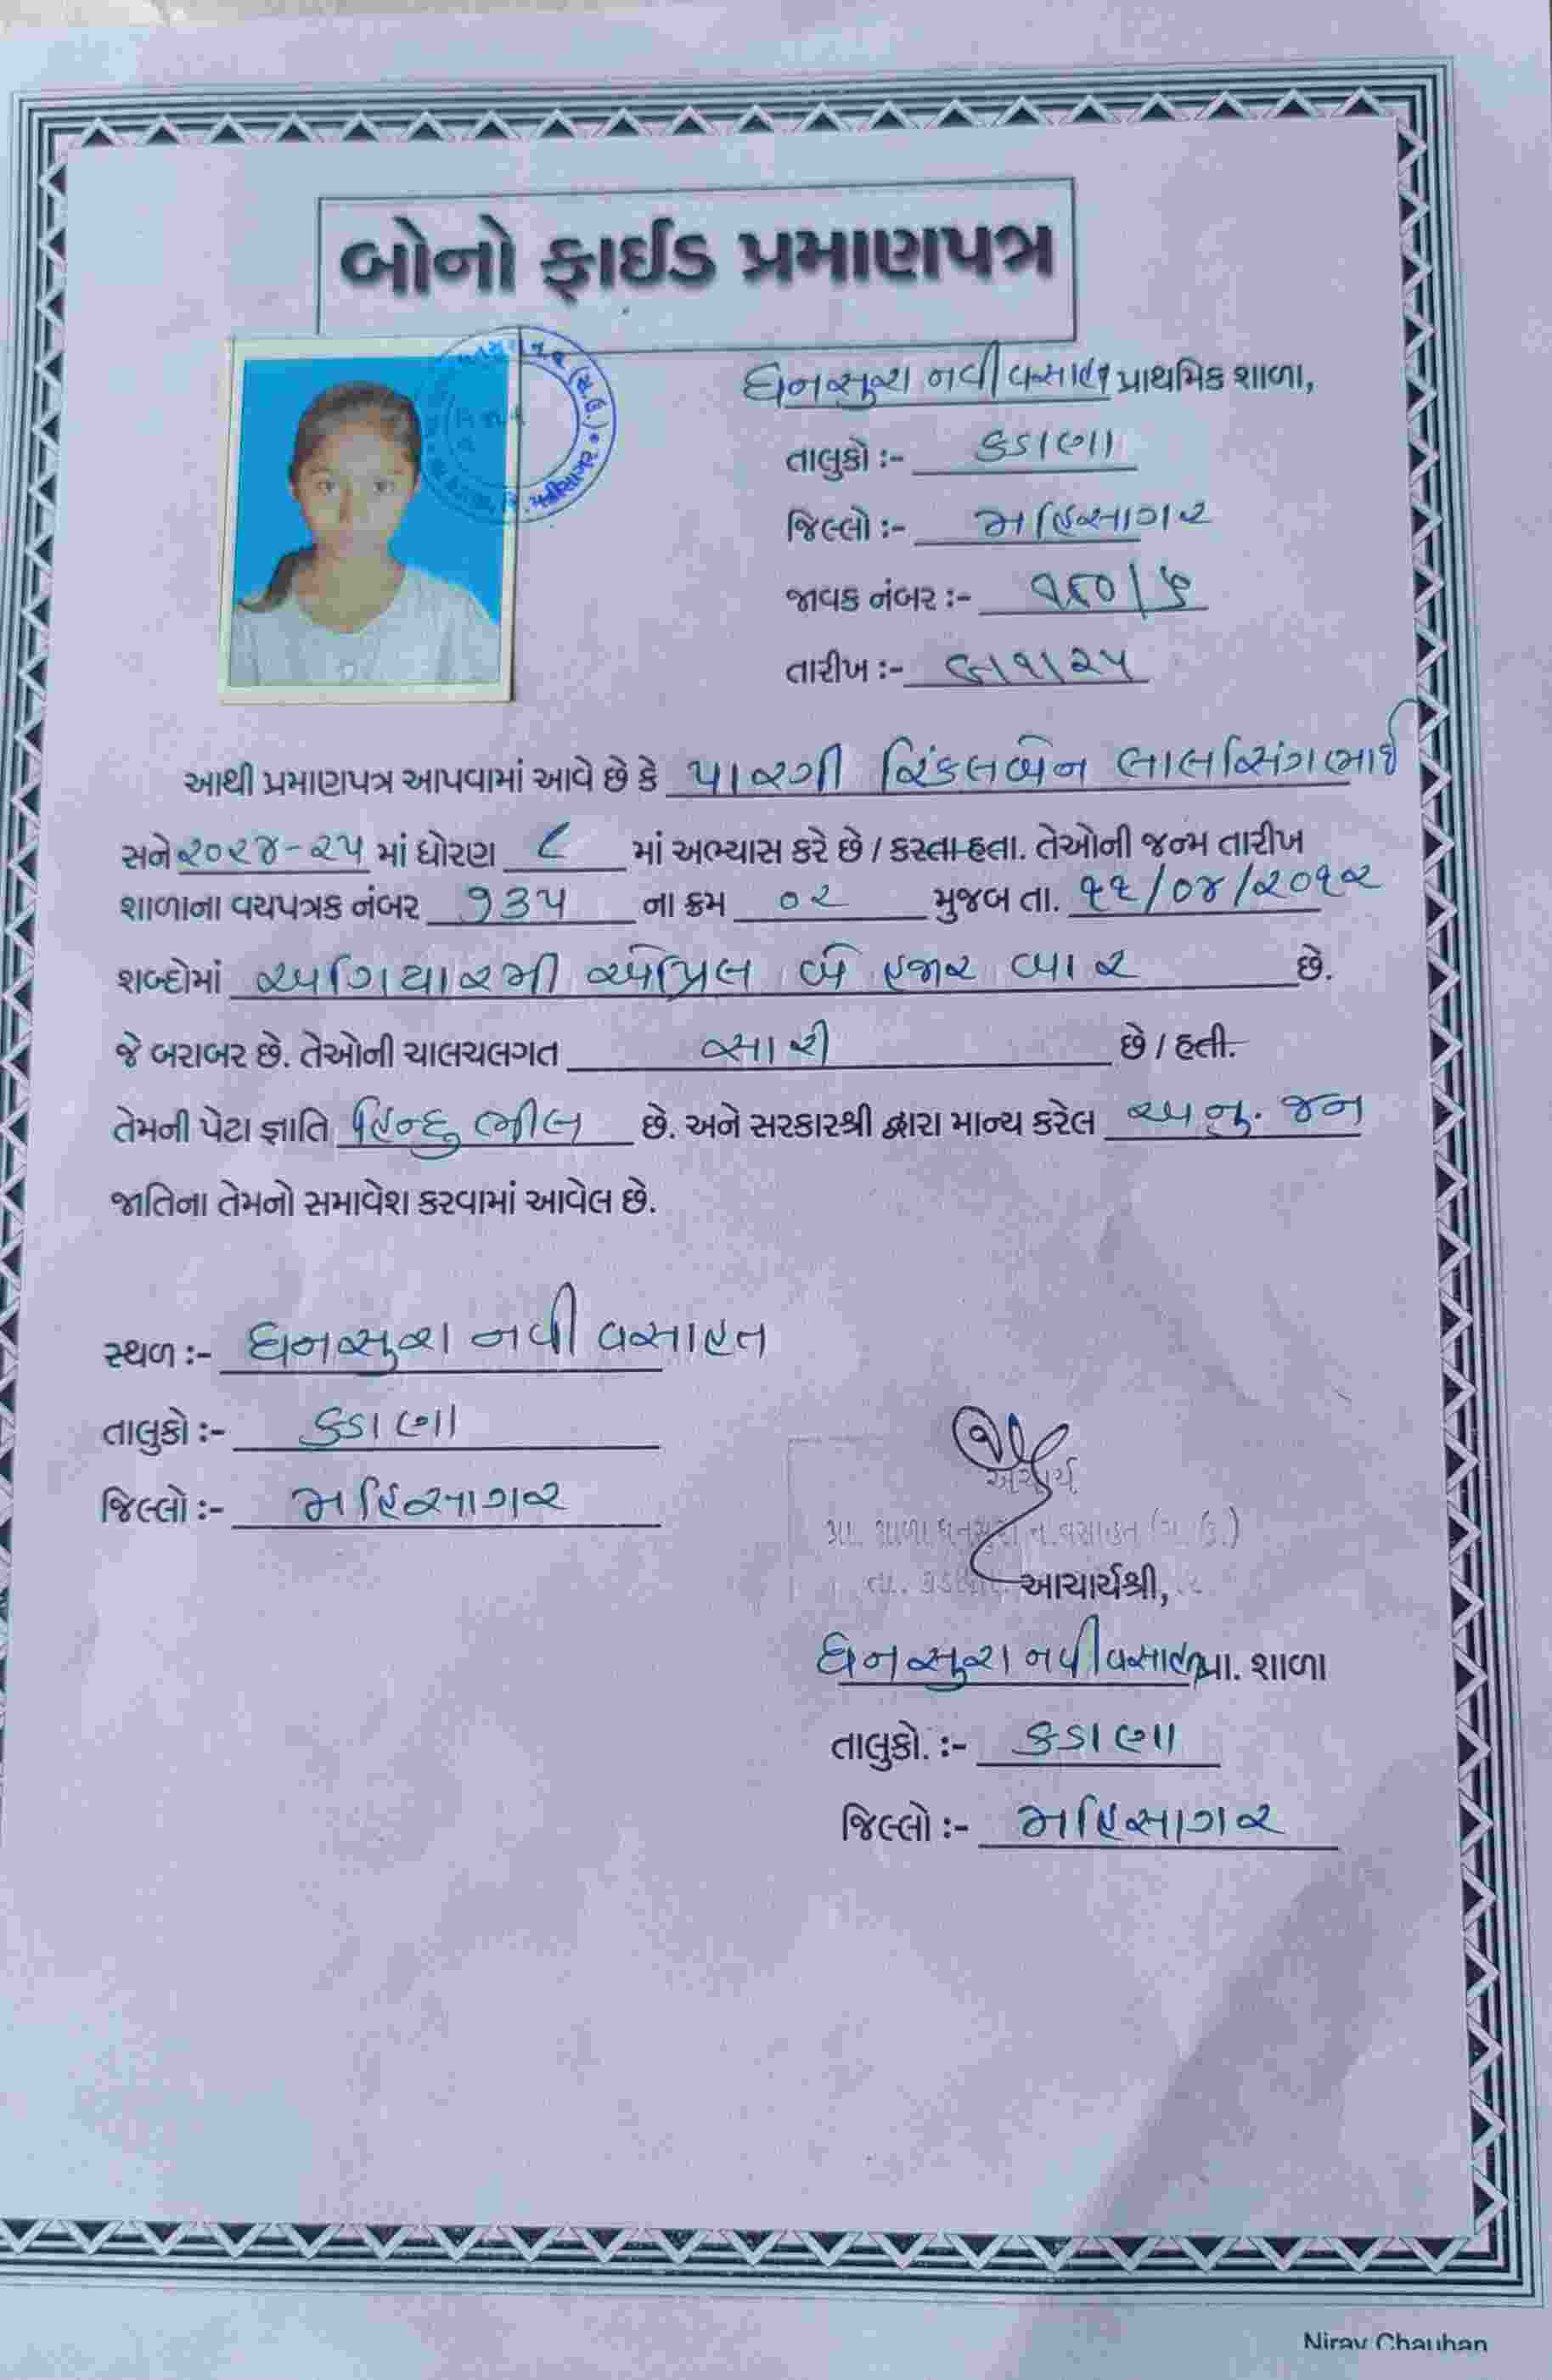 બોનો ફાઈડ પ્રમાણપત્ર
ધનસુરા નવી વસાહત પ્રાથમિક શાળા,
તાલુકો :- કડાણા
જિલ્લો :- મહિસાગર
જાવક નંબર :- ૧૬૦/
તારીખ :-
આથી પ્રમાણપત્ર આપવામાં આવે છે કે પારગી રિંકલબેન લાલસિંગભાઈ
સને ૨૦૨૪-૨૫ માં ધોરણ ૮ માં અભ્યાસ કરે છે / કરતા હતા. તેઓની જન્મ તારીખ
શાળાના વયપત્રક નંબર ૧૩૫ ના ક્રમ ૦૨ મુજબ તા. ૧૧/૦૪/૨૦૧૨
શબ્દોમાં અગિયારમી એપ્રિલ બે હજાર બાર છે.
જે બરાબર છે. તેઓની ચાલચલગત સારી છે / હતી.
તેમની પેટા જ્ઞાતિ હિન્દુ ભીલ છે. અને સરકારશ્રી દ્વારા માન્ય કરેલ અનુ. જન
જાતિના તેમનો સમાવેશ કરવામાં આવેલ છે.
સ્થળ :- ધનસુરા નવી વસાહત
તાલુકો :- કડાણા
જિલ્લો :- મહિસાગર
આચાર્ય
પ્રા. શાળા ધનસુરા ન.વસાહત
તા. કડાણા
આચાર્યશ્રી,
ધનસુરા નવી વસાહત પ્રા. શાળા
તાલુકો. :- કડાણા
જિલ્લો :- મહિસાગર
Nirav Chauhan